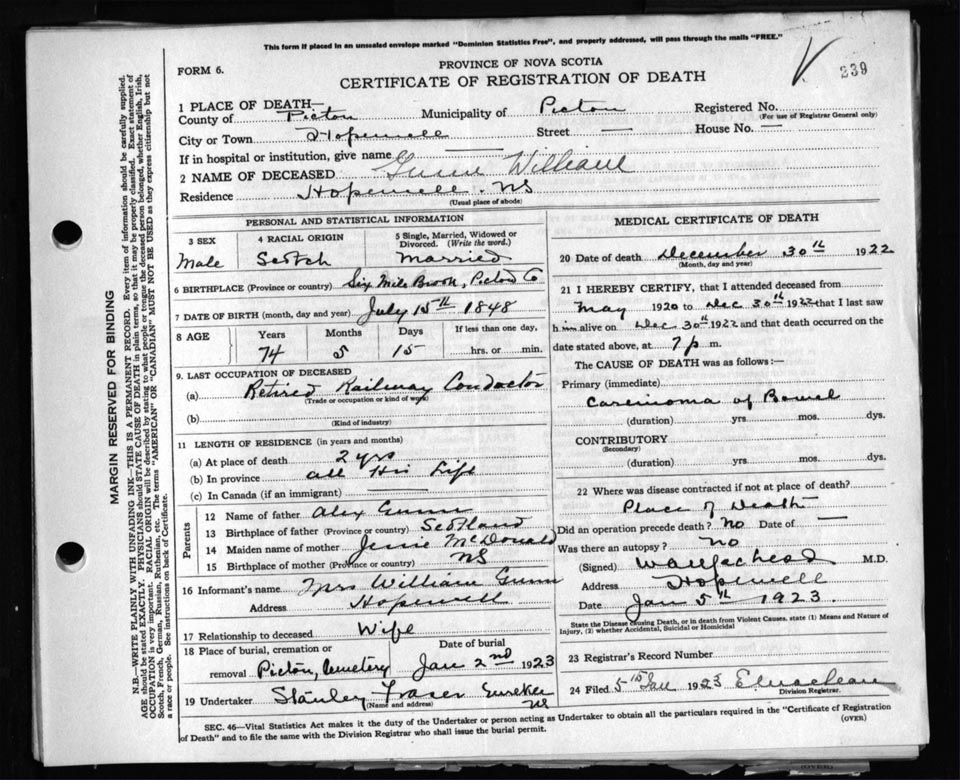 This form if placed in an unsealed envelope marked "Dominion Statistics Free", and properly addressed, will pass through the mails "FREE."
FORM 6.
PROVINCE OF NOVA SCOTIA
239
CERTIFICATE OF REGISTRATION OF DEATH
1 PLACE OF DEATH—
County of Picton Municipality of Picton Registered No.
(For use of Registrar General only)
City or Town Hopewell Street — House No. —
If in hospital or institution, give name
2 NAME OF DECEASED Gunn William
Residence Hopewell. NS
(Usual place of abode)
PERSONAL AND STATISTICAL INFORMATION
3 SEX
Male
4 RACIAL ORIGIN
Scotch
5 Single, Married, Widowed or Divorced. (Write the word.)
Married
6 BIRTHPLACE (Province or country) Six Mile Brook, Picton Co
7 DATE OF BIRTH (month, day and year) July 15th 1848
8 AGE
Years Months Days If less than one day,
74 5 15 hrs. or min.
9. LAST OCCUPATION OF DECEASED
(a) Retired Railway Conductor
(Trade or occupation or kind of work)
(b)
(Kind of industry)
11 LENGTH OF RESIDENCE (in years and months)
(a) At place of death 2 yrs
(b) In province all His Life
(c) In Canada (if an immigrant)
Parents
12 Name of father Alex Gunn
13 Birthplace of father (Province or country) Scotland
14 Maiden name of mother Jessie McDonald
15 Birthplace of mother (Province or country) NS
16 Informant's name Mrs William Gunn
Address Hopewell
17 Relationship to deceased Wife
18 Place of burial, cremation or Date of burial
removal Picton, Cemetery Jan 2nd 1923
19 Undertaker Stanley Fraser Eureka NS
(Name and address)
MEDICAL CERTIFICATE OF DEATH
20 Date of death December 30th 1922
(Month, day and year)
21 I HEREBY CERTIFY, that I attended deceased from
May 1920 to Dec 30th 1922 that I last saw
him alive on Dec 30th 1922 and that death occurred on the
date stated above, at 7 p m.
The CAUSE OF DEATH was as follows:—
Primary (immediate)
Carcinoma of Bowel
(duration) yrs. mos. dys.
CONTRIBUTORY
(Secondary)
(duration) yrs. mos. dys.
22 Where was disease contracted if not at place of death?
Place of Death
Did an operation precede death? No Date of —
Was there an autopsy? No
(Signed) M.D.
Address Hopewell
Date Jan 5th 1923.
State the Disease causing Death, or in death from Violent Causes, state (1) Means and Nature of
Injury, (2) whether Accidental, Suicidal or Homicidal
23 Registrar's Record Number
24 Filed 5th Jan 1923
Division Registrar.
SEC. 46—Vital Statistics Act makes it the duty of the Undertaker or person acting as Undertaker to obtain all the particulars required in the "Certificate of Registration
of Death" and to file the same with the Division Registrar who shall issue the burial permit.
(OVER)
MARGIN RESERVED FOR BINDING
N.B.—WRITE PLAINLY WITH UNFADING INK—THIS IS A PERMANENT RECORD. Every item of information should be carefully supplied.
AGE should be stated EXACTLY. PHYSICIANS should STATE CAUSE OF DEATH in plain terms, so that it may be properly classified. Exact statement of
OCCUPATION is very important. RACIAL ORIGIN will be described by stating to what people or tongue the deceased person belonged, whether English, Irish,
Scotch, French, German, Russian, Ruthenian, etc. The terms "AMERICAN" OR "CANADIAN" MUST NOT BE USED as they express citizenship but not
a race or people. See instructions on back of Certificate.